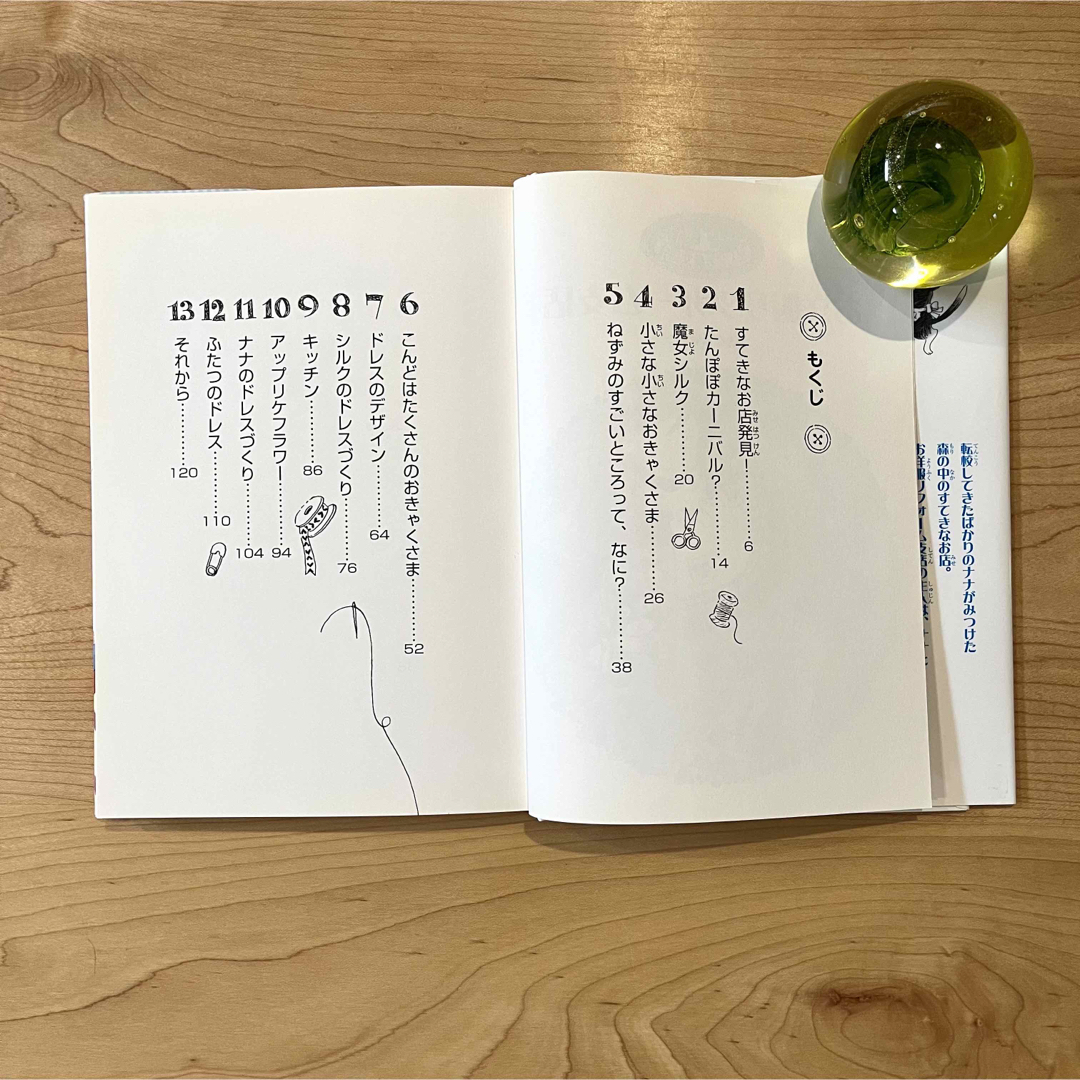 もくじ
1 すてきなお店発見！……6
2 たんぽぽカーニバル？……14
3 魔女シルク……20
4 小さな小さなおきゃくさま……26
5 ねずみのすごいところって、なに？……38
6 こんどはたくさんのおきゃくさま……52
7 ドレスのデザイン……64
8 シルクのドレスづくり……76
9 キッチン……86
10 アップリケフラワー……94
11 ナナのドレスづくり……104
12 ふたつのドレス……110
13 それから……120
転校してきたばかりのナナがみつけた
森の中のすてきなお店。